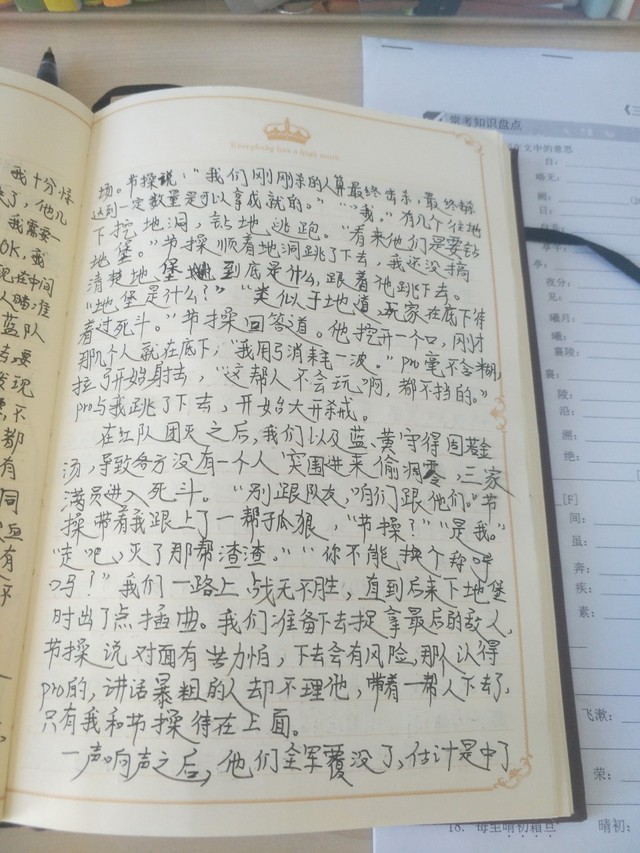 我十分惊
了,他几
我需要一
OK,我
现在中间
人瞄准
蓝队
去要
发现
票,不
都
有
同
血
有
场。节操说:“我们刚刚杀的人算最终击杀,最终
达到一定数量是可以拿成就的。”“我。”有几个往地
下挖地洞,钻地逃跑。“看来他们是要钻
地堡。”节操顺着地洞跳了下去,我还没搞
清楚地堡到底是什么,跟着他跳下去。
“地堡是什么?”“类似于地道,玩家在底下待
着过死斗。”节操回答道。他挖开一个口,刚才
那几个人就在底下,“我用弓消耗一波。”pro毫不含糊,
拉弓开始射击,“这帮人不会玩啊,都不挡的。”
pro与我跳了下去,开始大开杀戒。
在红队团灭之后,我们以及蓝、黄守得固若金
汤,导致各方没有一个人突围进来偷凋零,三家
满员进入死斗。“别跟队友,咱们跟他们。”节
操带着我跟上了一帮子孤狼,“节操?”“是我。”
“走吧,灭了那帮渣渣。”“你不能换个称呼
吗!”我们一路上战无不胜,直到后来下地堡
时出了点插曲。我们准备下去捉拿最后的敌人,
节操说对面有苦力怕,下去会有风险,那人认得
pro的,讲话暴粗的人却不理他,带着一帮人下去了,
只有我和节操待在上面。
一声响声之后,他们全军覆没了,估计是中了
常考知识盘点
文中的意思
自:
略无:
阙:
日
亭午
夜分:
见:
曦月:
曦:
襄陵:
襄:
陵:
沿:
溯:
绝:
[F]
间:
虽:
奔:
疾:
素:
飞漱:
荣:
18. 每至晴初霜旦 晴初: